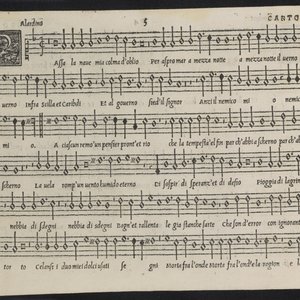 Alardino 5 CANTO
Assa la naue mia colma d'oblio Per aspro mar a mezza notte a mezza notte il uerno
uerno Infra Scilla et Caribdi Et al gouerno sied'il signor Anzi'l nemic mi o nemic
mi o. A ciascun remo un pensier pront'et rio che la tempesta e'l fin par ch'abbi a scherno par ch'abbi a
scherno La uela romp'un uento humido eterno Di sospir di speranz'et di desio Pioggia di lagrim
nebbia di sdegni nebbia di sdegni bagn'et rallenta le gia stanche sarte Che son d'error con ignorant
tor to Celansi i duo miei dolci usati se gni Morta fra l'onde Morta fra l'onde e la ragion e l